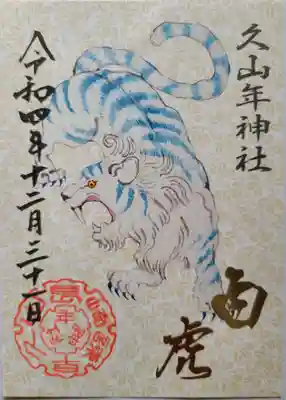 久山年神社
白虎
令和四年十二月三十一日